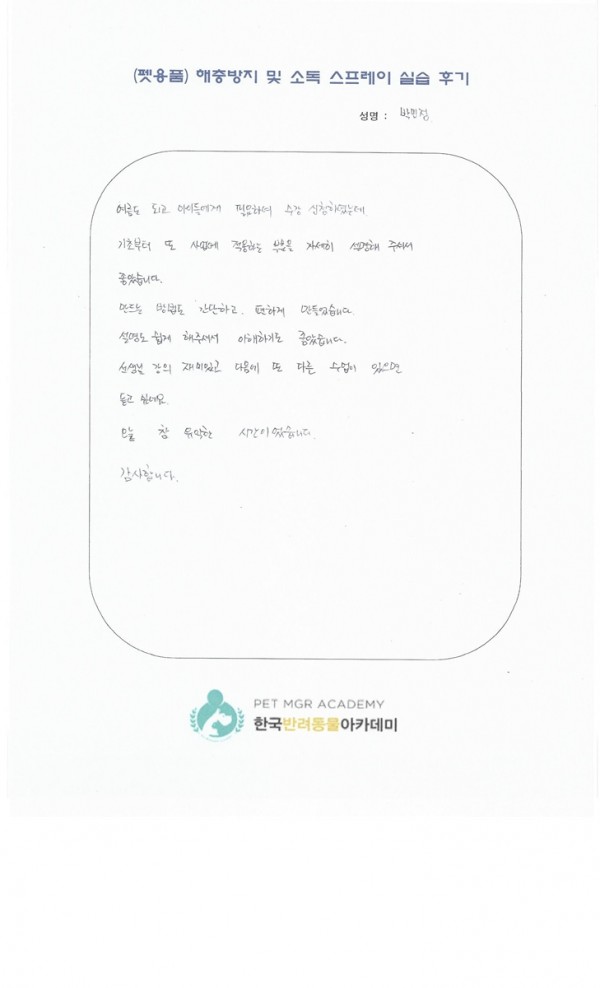 (펫용품) 해충방지 및 소독 스프레이 실습 후기
성명 : 박민정
여름도 되고 아이들에게 필요하여 수강 신청하였는데
기초부터 또 사업에 적용하는 부분을 자세히 설명해 주셔서
좋았습니다.
만드는 방법도 간단하고, 편하게 만들었습니다.
설명도 쉽게 해주셔서 이해하기도 좋았습니다.
선생님 강의 재미있고 다음에 또 다른 수업이 있으면
듣고 싶네요.
오늘 참 유익한 시간이었습니다.
감사합니다.
PET MGR ACADEMY
한국반려동물아카데미